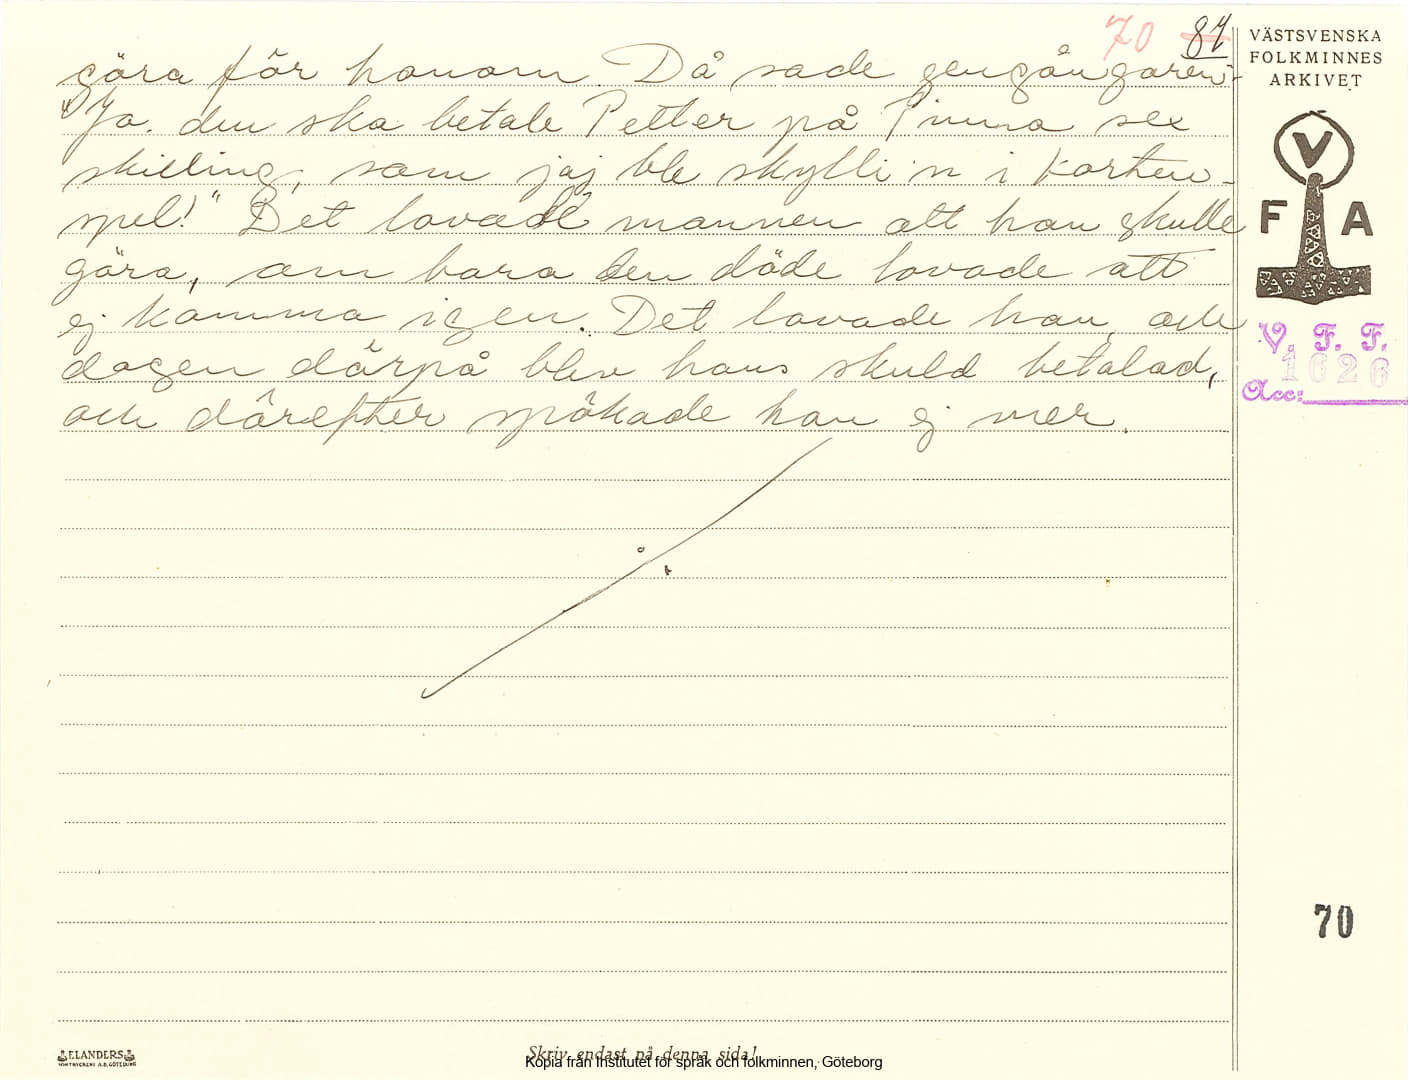 70 84
göra för honom. Då sade gengångaren:
"Ja. du ska betale Petter på Pinna sex
skilling, som jaj ble skylli'n i korten-
spel!" Det lovade mannen att han skulle
göra, om bara den döde lovade att
ej komma igen. Det lovade han, och
dagen därpå blev hans skuld betalad,
och därefter spökade han ej mer.
VÄSTSVENSKA
FOLKMINNES
ARKIVET
V
F A
V. F. F.
1626
Acc:
70
ELANDERS
Skriv endast på denna sida!
Kopia från Institutet för språk och folkminnen, Göteborg